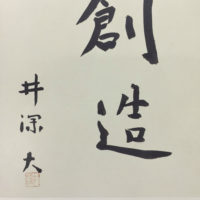 創造
井深大